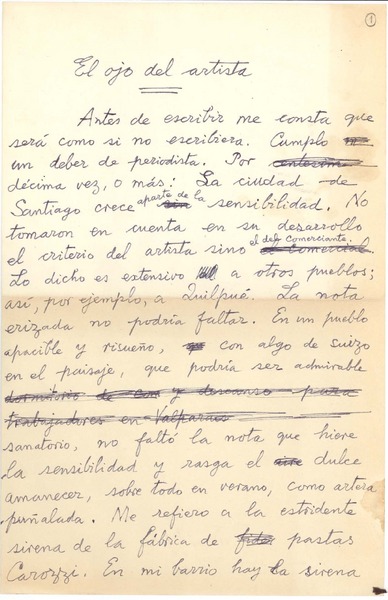 1
El ojo del artista
Antes de escribir me consta que
será como si no escribiera. Cumplo
un deber de periodista. Por centésim
décima vez, o más: La ciudad de
Santiago crece aparte de la sensibilidad. No
tomaron en cuenta en su desarrollo
el criterio del artista sino el del comerciante. o comercial
Lo dicho es extensivo a otros pueblos;
así, por ejemplo, a Quilpué. La nota
erizada no podría faltar. En un pueblo
apacible y risueño, con algo de suizo
en el paisaje, que podría ser admirable
dormitorio de y descanso para
trabajadores en Valparaís
sanatorio, no faltó la nota que hiere
la sensibilidad y rasga el aire dulce
amanecer, sobre todo en verano, como artera
puñalada. Me refiero a la estridente
sirena de la fábrica de fide pastas
Carozzi. En mi barrio hay la sirena